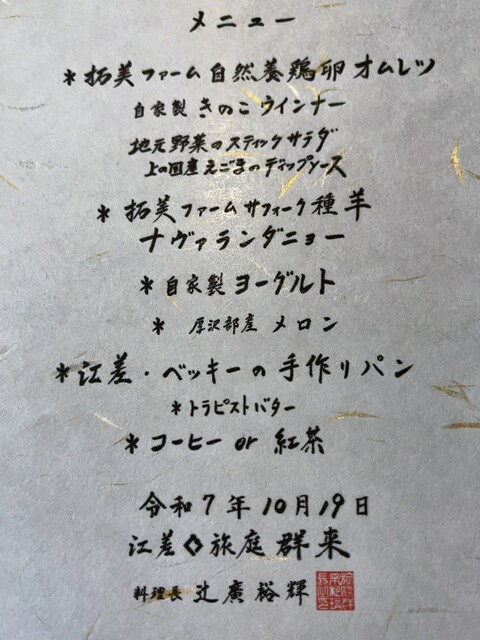 メニュー
＊拓美ファーム自然養鶏卵オムレツ
自家製きのこウインナー
地元野菜のスティックサラダ
上の国産えごまのディップソース
＊拓美ファームサフォーク種羊
ナヴァランダニョー
＊自家製ヨーグルト
＊厚沢部産メロン
＊江差・ベッキーの手作りパン
＊トラピストバター
＊コーヒー or 紅茶
令和7年10月19日
江差◇旅庭群来
料理長 辻廣裕輝